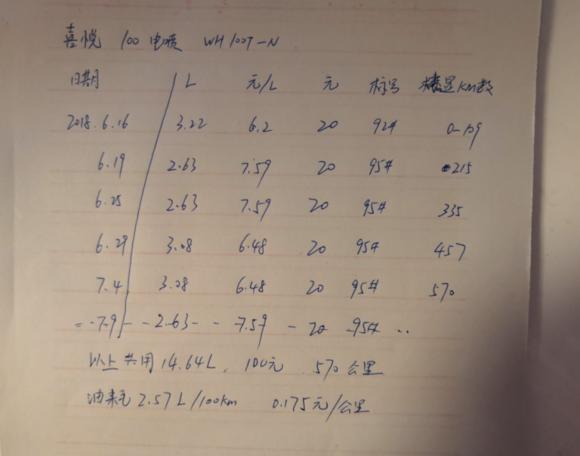 喜悦 100 电喷 WH100T-N
日期 L 元/L 元 标号 楼显KM数
2018.6.16 3.22 6.2 20 92# 0-109
6.19 2.63 7.59 20 95# 215
6.25 2.63 7.59 20 95# 335
6.29 3.08 6.48 20 95# 457
7.4 3.08 6.48 20 95# 570
7.9 2.63 7.59 20 95#
以上共用 14.64L, 100元 570公里
油耗 2.57L/100km 0.175元/公里